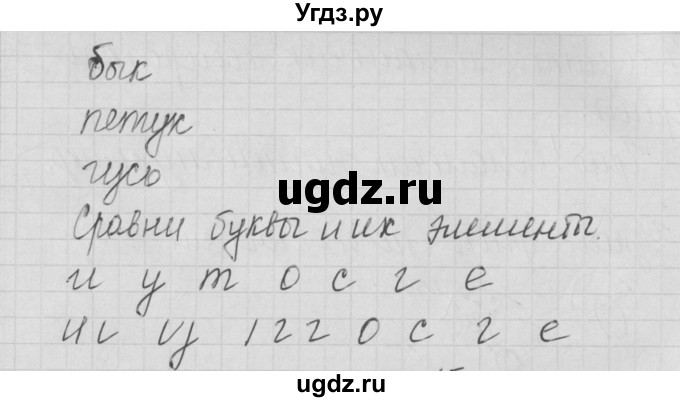 Угдз.ру
бык
петух
гусь
ugdz.ru
Сравни буквы и их элементы.
и у т о с г е
о с г е
ugdz.ru